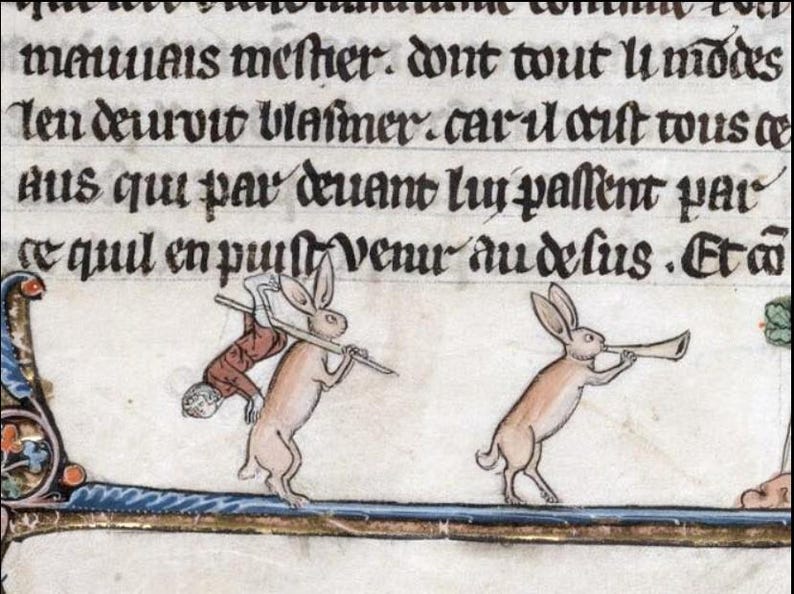 mauuais mestier. dont tout li mōdes
len deuroit blasmer. car il ocist tous ce
aus qui par deuant lui passent par
ce quil en puist venir au desus. Et cō